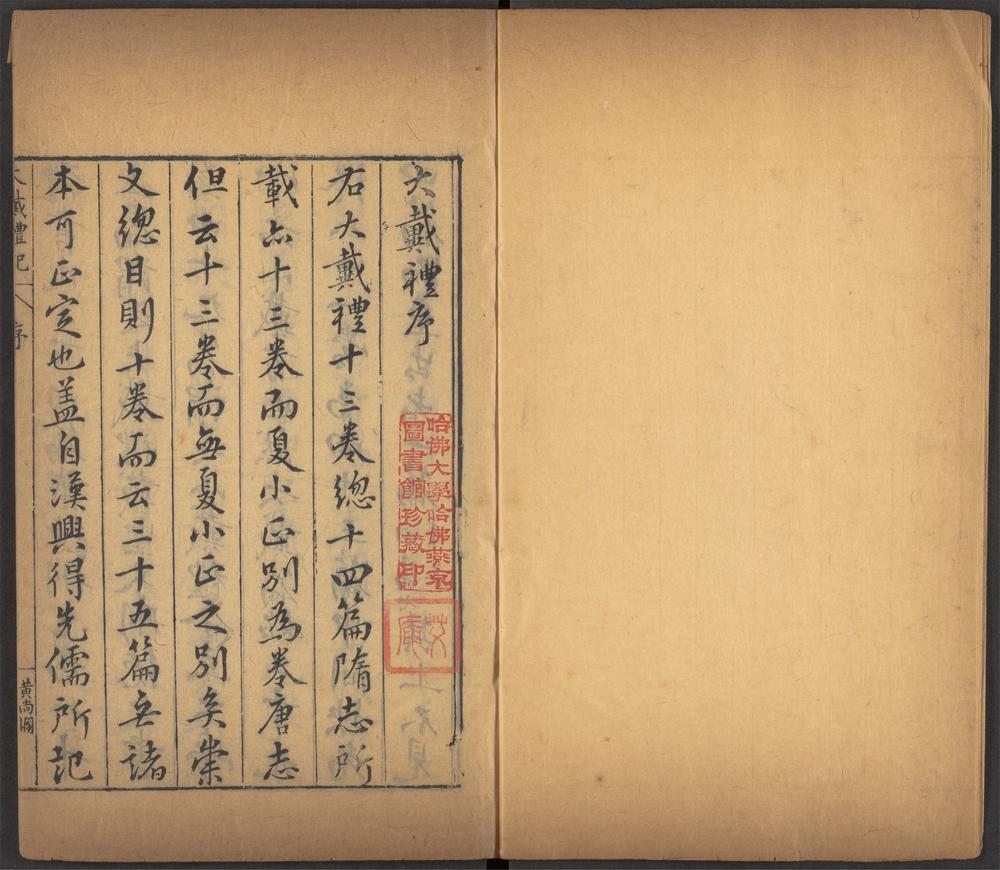 大戴禮序
右大戴禮十三卷總十四篇隋志所
載亦十三卷而夏小正別為卷唐志
但云十三卷而無夏小正之別矣崇
文總目則十卷而云三十五篇無諸
本可正定也盖自漢興得先儒所記
大戴禮記
序
黄尚
哈佛大學哈佛燕京
圖書館珍藏印